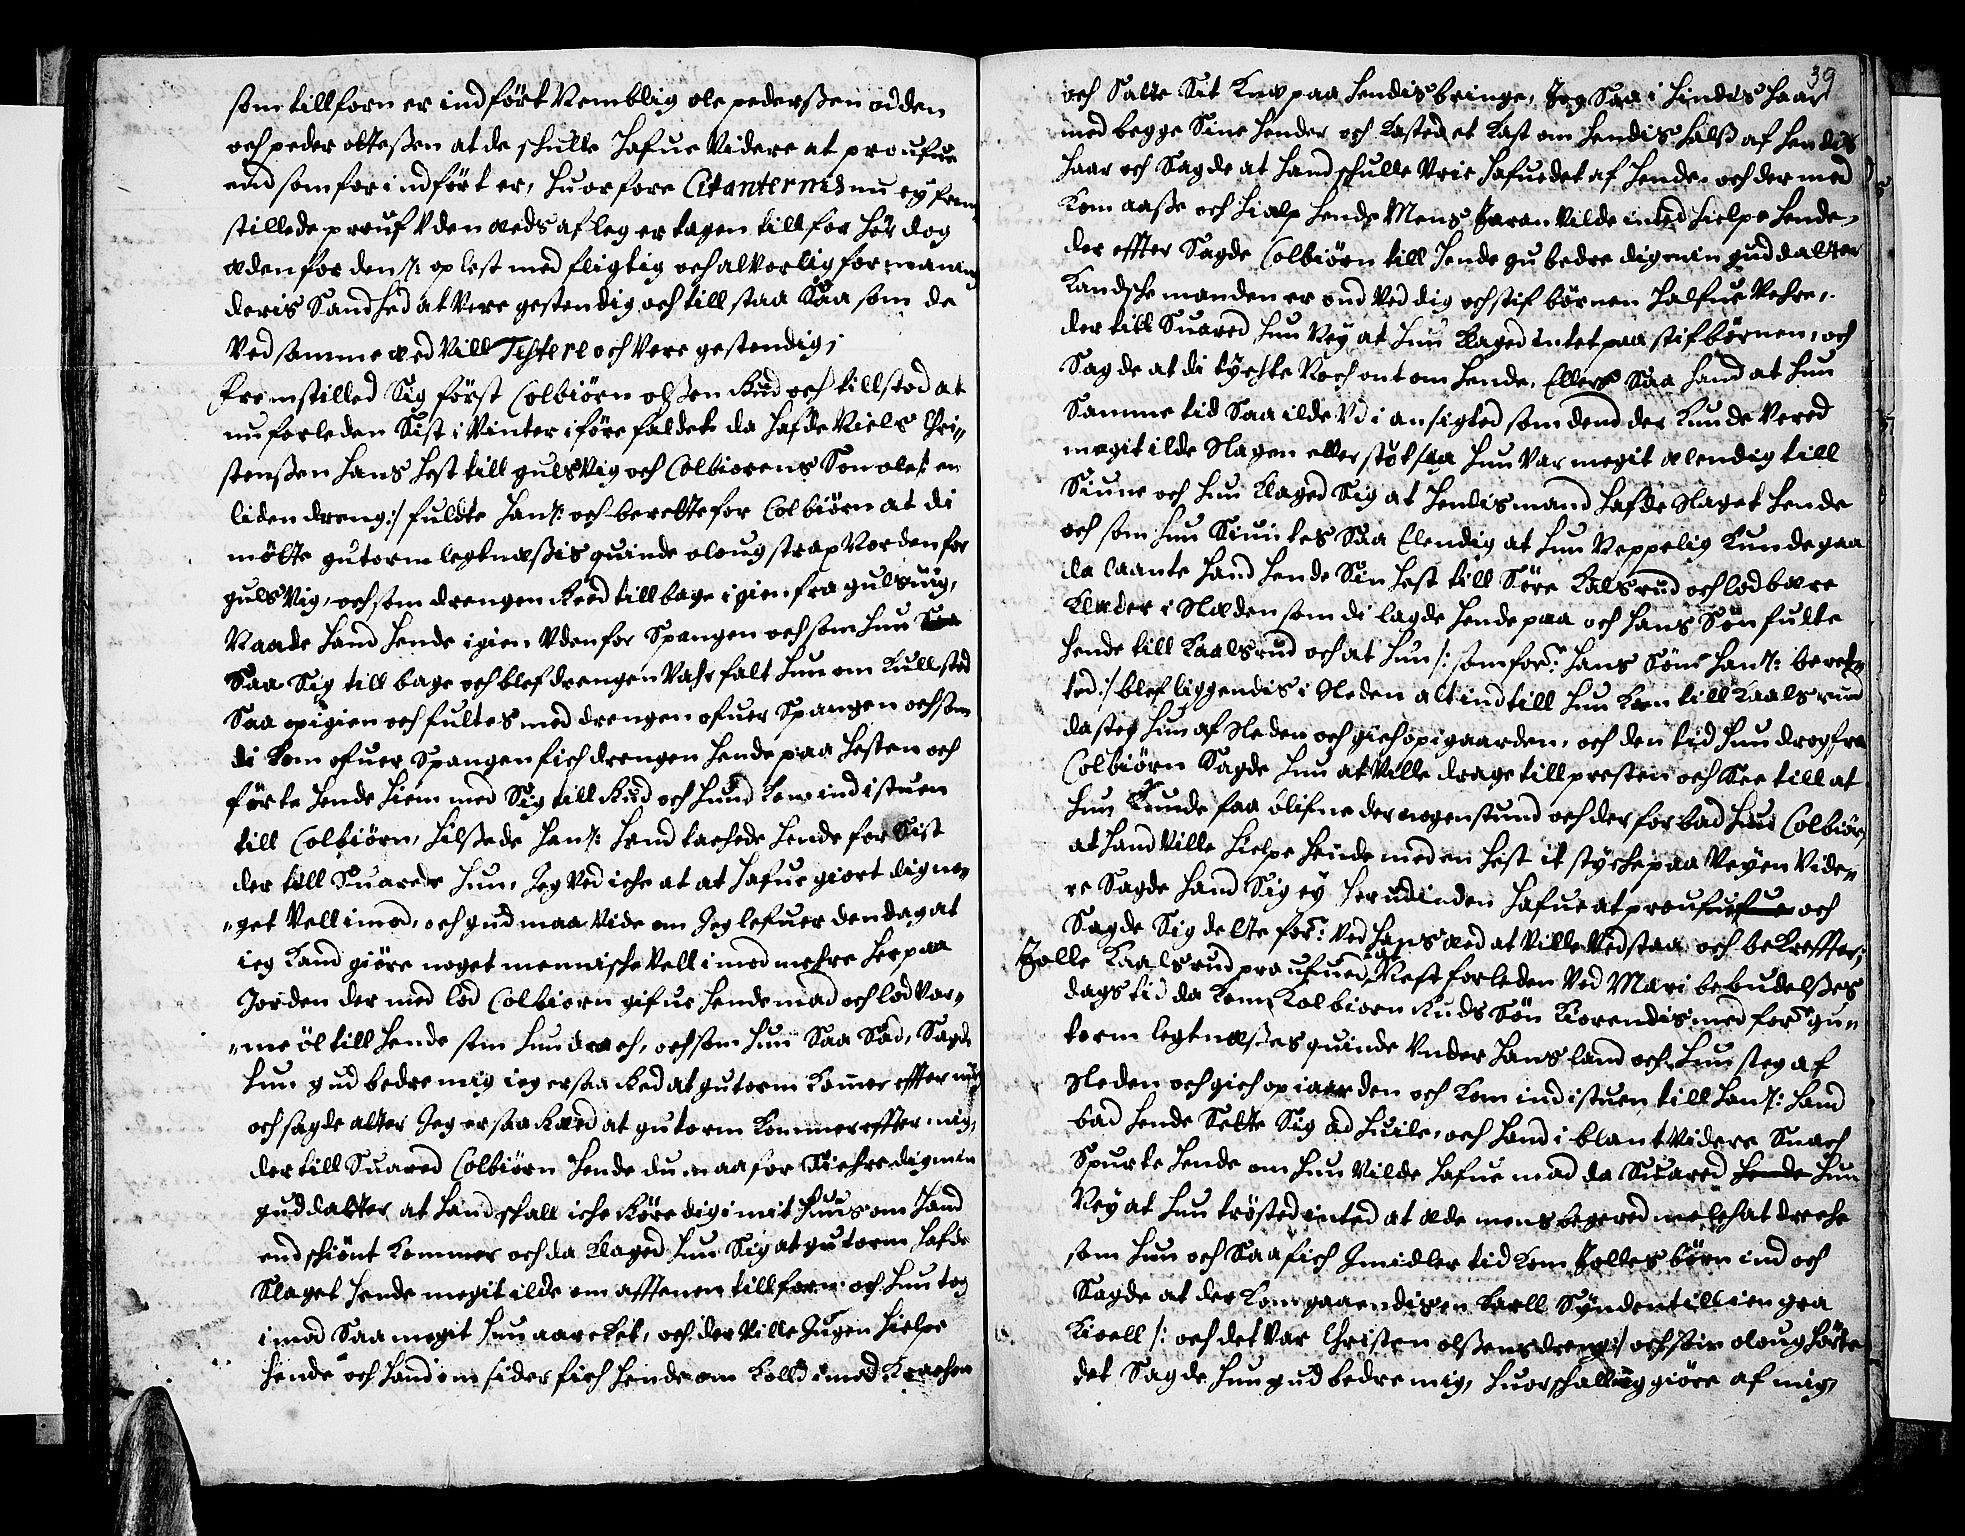 som tillforn er indført Nemblig ole pederßen odden
och peder olteßen at de schulle hafue Videre at proufue
end som for indført er, huorfore Citanternis nu ey frem
stillede prouf Vden eeds afleg er tagen till for hør dog
eden for den /: oplest med fligtig och alvorlig formaning
deris Sandhed at Vere gestendig och till staa Saa som de
Ved samme eed Vill Testere och Vere gestendig;
fremstilled Sig først Colbiørn olßen Rud och tillstod at
nu forleden Sist i Vinter i føre faldet da hafde Niels Chri„
stenßen hans hest till gulsVig och Colbiorens Søn ole /: en
liden dreng :/ fuldte han /: och berette for Colbiørn at di
møtte gutorm legtnæßis quinde oloug strax Norden for
gulsVig, och som drengen Reed tillbage igien fra gulsuig,
Naade hand hende igien Vden for Spangen och som hun
Saa Sig till bage och blef drengen Vahr falt hun om Kull sted
Saa op igien och fultes med drengen ofuer Spangen och som
di kom ofuer Spangen fich drengen hende paa hesten och
førte hende hiem med Sig till Rud och hun kom ind i stuen
till Colbiørn, hilßede han /: hand tachede hende for Sist
der till Suarede hun, Jeg Ved iche at at hafue giort dig no„
„get Vell imod, och gud maa Vide om Jeg lefuer den dag at
ieg Kand giøre noget mennische Vell imod mehre her paa
Jorden der med lod Colbiorn gifue hende mad och lod Var„
„me øl till hende som hun drach, och som hun Saa Sad, Sagde
hun gud bedre mig ieg er saa Red at gutorm Komer effter mig
och sagde atter Jeg er saa Ræd at gutorm kommer effter mig,
der till Suared Colbiørn hende du maa for Sichre dig min
gud datter at hand schall iche Røre dig i mit huus om hand
end schiønt kommer och da Klaged hun Sig at gutorm hafde
Slaget hende megit ilde om afftenen tillforn och hun tog
imod Saa megit hun aarcket, och der Ville Jngen hielpe
hende och hand om sider fich hende om Kolld imod Krachen
39
och Satte Sit Knæ paa hendis bringe, Jog Saa i hindis haar
med begge Sine hender och Kasted et Kast om hendis halß af hendis
haar och Sagde at hand schulle Vrie hafuedet af hende och der med
Kom aaße och hialp hende Mens Jaran Vilde inted hielpe hende,
der effter Sagde Colbiørn till hende gu bedre dig min gud datter
Kandsche manden er ond Ved dig och stif børnen halfue Vehre,
der till Suared hun Ney at hun Klaged intet paa stifbørnen, och
Sagde at di tychte Noch ont om hende, Ellers Saa hand at hun
Samme tid Saa ilde Vd i ansigted som dend der Kunde Vered
megit ilde Slagen eller støt saa hun Var megit elendig till
Siune och hun Klaged Sig at hendis mand hafde Slaget hende
och som hun Siuntes Saa Elendig at hun Neppelig Kunde gaa
da laante hand hende Sin hest till Søre Kalsrud och lod bære
Klæder i Slæden som di lagde hende paa och hans Søn fulte
hende till Kaalsrud och at hun /: som for: hans Søn han /: beret„
ted :/ blef liggendis i Sleden alt indtill hun kom till Kaalsrud
da steg hun af Sleden och gich op i gaarden, och den tid hun drog fra
Colbiørn Sagde hun at Ville drage till presten och See till at
hun Kunde faa blifue der nogen stund och der for bad hun Colbiørn
at hand Ville hielpe hende med en hest it styche paa Veyen Vide„
re Sagde hand Sig ey her udinden hafue at proufue och
Sagde Sig dette for: Ved hans eed at Ville Vedstaa och bekreffter;
Jolle Kaalsrud proufued, at Nest forleden Ved Mari bebudelßes
dags tid da Kom Kolbiorn Ruds Søn Kiorendis med for: gu„
torm legtnæßes quinde Vnder hans land och hun steg af
Sleden och gich op i gaarden och Kom ind i stuen till han /: hand
bad hende Sette Sig ad huile, och hand i blant Videre Snach
Spurte hende om hun Vilde hafue mad da Suared hun
Ney at hun trøsted inted at æde mens begered melch at drche
som hun och Saa fich Jmidler tid kom Jolles børn ind och
Sagde at der kom gaaendis en Karll Synden till ien graa
Kioell /: och det Var Christen olßens dreng :/ och som oloug hørte
det Sagde hun gud bedre mig, huor schall ieg giøre af mig,